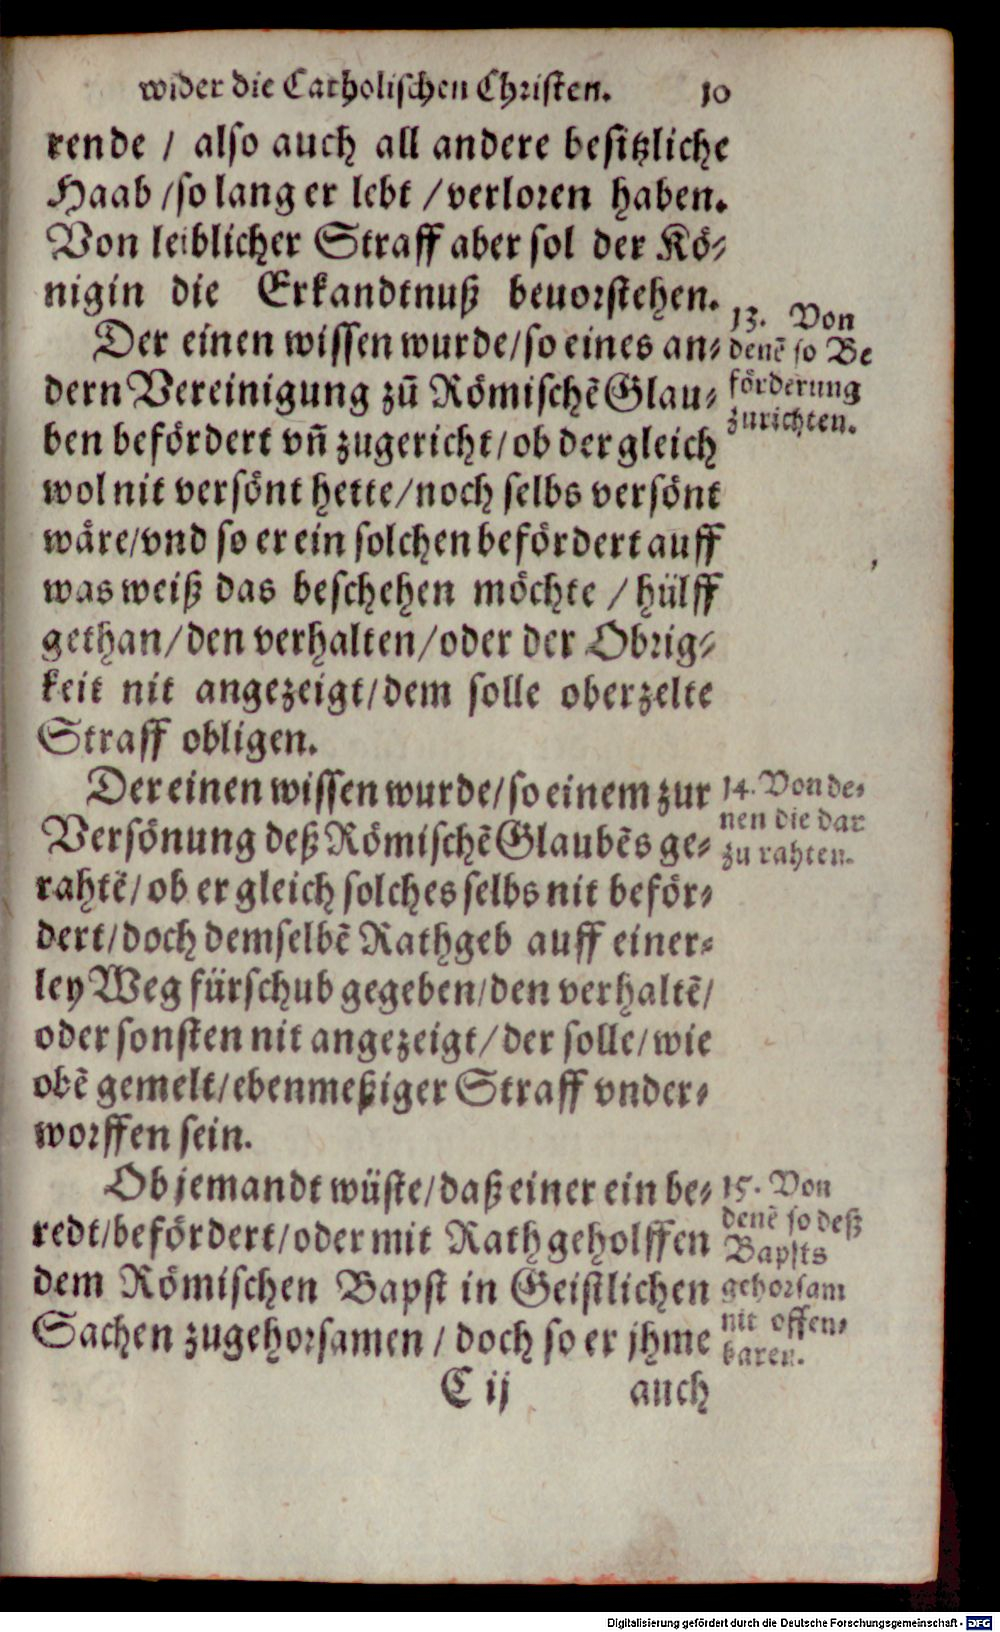 wider die Catholischen Christen. 10
rende / also auch all andere besitzliche
Haab / so lang er lebt / verloren haben.
Von leiblicher Straff aber sol der Kö-
nigin die Erkandtnuß beuorstehen.
Der einen wissen wurde / so eines an-
dern Vereinigung zū Römischē Glau-
ben befördert vn̄ zugericht / ob der gleich
wol nit versönt hette / noch selbs versönt
wäre / vnd so er ein solchen befördert auff
was weiß das beschehen möchte / hülff
gethan / den verhalten / oder der Obrig-
keit nit angezeigt / dem solle oberzelte
Straff obligen.
13. Von
denē so Be
förderung
zurichten.
Der einen wissen wurde / so einem zur
Versönung deß Römischē Glaubēs ge-
rahtē / ob er gleich solches selbs nit beför-
dert / doch demselbē Rathgeb auff einer-
ley Weg fürschub gegeben / den verhaltē /
oder sonsten nit angezeigt / der solle / wie
obē gemelt / ebenmeßiger Straff vnder-
worffen sein.
14. Von de-
nen die dar
zu rahten.
Ob jemandt wüste / daß einer ein be-
redt / befördert / oder mit Rath geholffen
dem Römischen Bapst in Geistlichen
Sachen zugehorsamen / doch so er jhme
15. Von
denē so deß
Bapsts
gehorsam
nit offen-
baren.
C ij auch
Digitalisierung gefördert durch die Deutsche Forschungsgemeinschaft - DFG